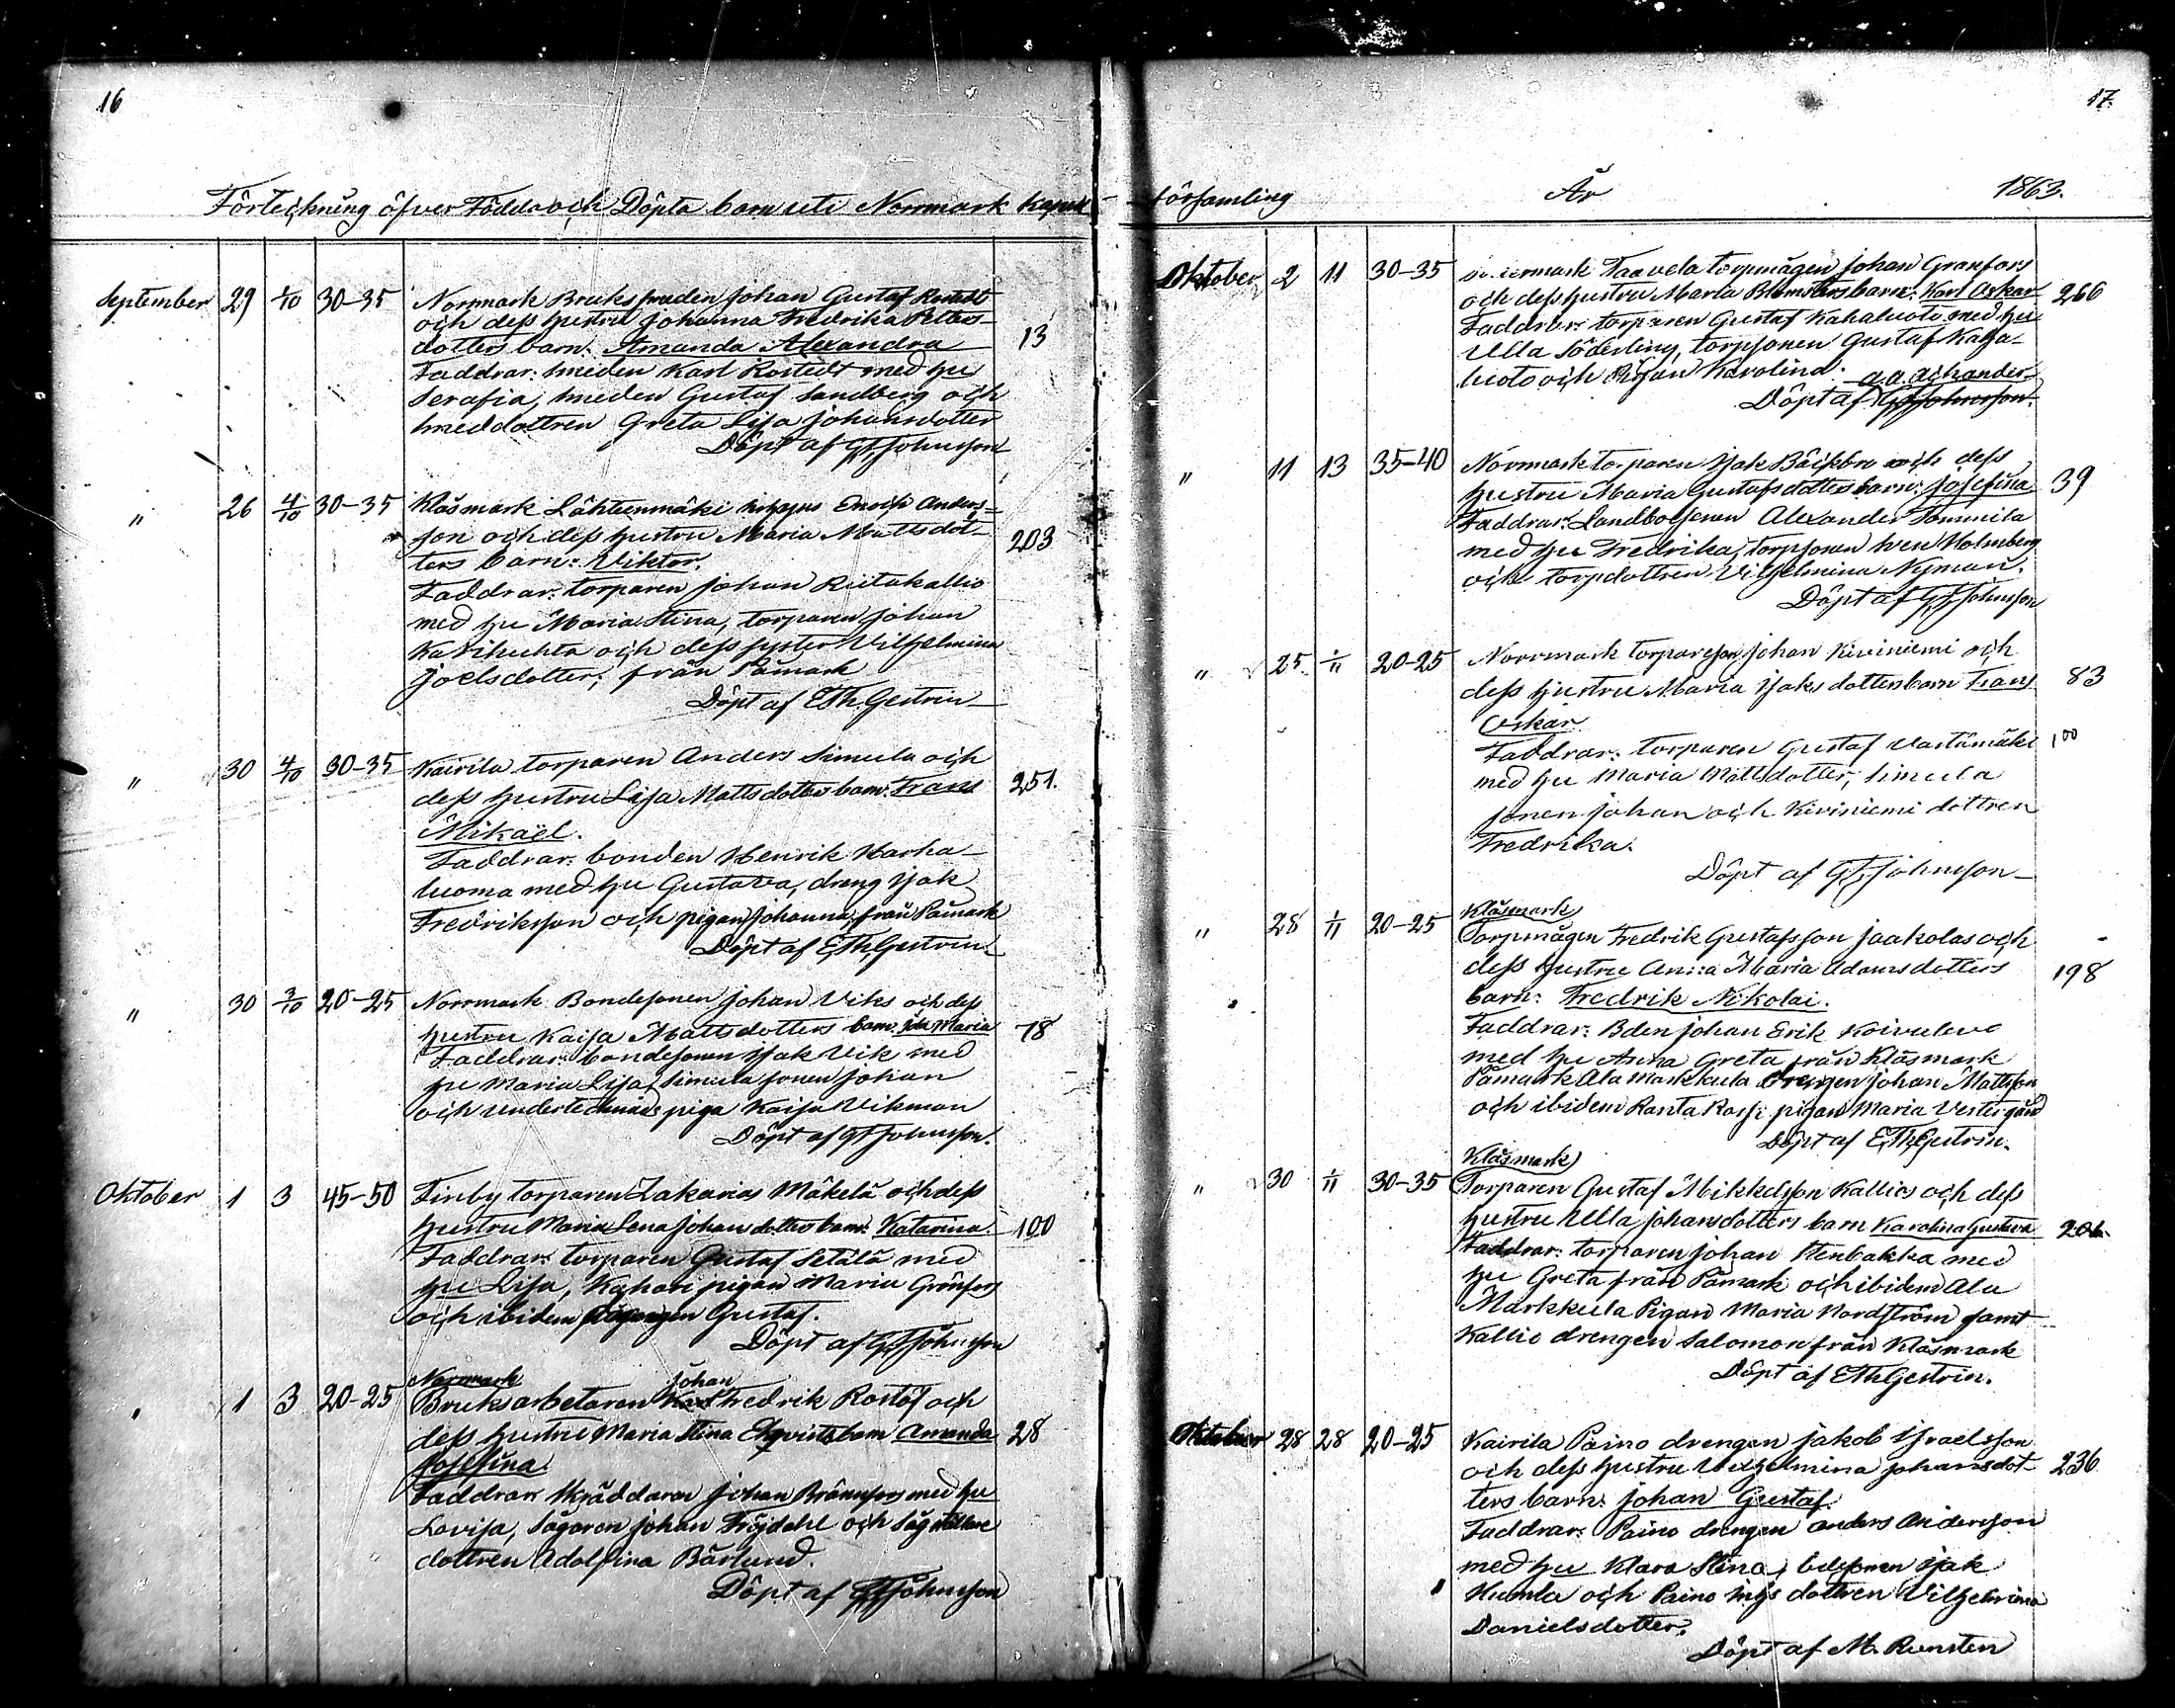 16
Förteckning öfver Födda och Döpta barn uti Norrmark Kapell
September 29 1/10 30-35 Norrmark Bruksfmeden Johan Gustaf Rostedt
och dess hustru Johanna Fredrika Petters-
dotters barn: Amanda Alexandra 13
Faddrar: smeden Karl Rostedt med hu
Serafia, smeden Gustaf Sandberg och
smeddottren Greta Lisa Johansdotter
Döpt af G F Johnsson
" 26 4/10 30-35 Klåsmark Lähteenmäki Enrik Anders-
son och dess hustru Maria Mattsdot- 203
ters barn: Viktor.
Faddrar: torparen Johan Riitakallio
med hu Maria Stina, torparen Johan
Karihuhta och dess syster Vilhelmina
Joelsdotter, från Påmark
Döpt af E Th. Gestrin
" 30 4/10 30-35 Kairila torparen Anders Simula och
dess hustru Lisa Mattsdotters barn: Frans 251.
Mikaël.
Faddrar: bonden Henrik Harha-
luoma med hu Gustava, dreng Isak
Fredriksson och pigan Johanna från Påmark
Döpt af E Th. Gestrin
" 30 3/10 20-25 Norrmark Bondesonen Johan Viks och dess
hustru Kaisa Mattsdotters barn: Ida Maria 78
Faddrar: bondesonen Isak Vik med
hu Maria Lisa, Simula sonen Johan
och undertecknads piga Kaisa Vikman
Döpt af G F Johnsson.
Oktober 1 3 45-50 Finby torparen Zakarias Mäkelä och dess
hustru Maria Lena Johansdotters barn: Katarina. 100
Faddrar: torparen Gustaf Setälä med
hu Lisa, Kahari pigan Maria Grönfors
och ibidem Gustaf.
Döpt af G F Johnsson
Norrmark Johan
" 1 3 20-25 Bruksarbetaren Karl Fredrik Rostöf och
dess hustru Maria Stina Ekqvists barn Amanda 28
Josefina.
Faddrar: Skräddaren Johan Brännfors med hu
Lovisa, Sågaren Johan Fröjdahl och Sågställare
dottren Adolfina Bärlund.
Döpt af G F Johnsson
17.
församling År 1863.
Oktober 2 11 30-35 Taavela torpmågen Johan Granfors
och dess hustru Maria Blomsters barn: Karl Oskar 266
Faddrar: torparen Gustaf Kahaluoto med hu
Ulla Söderling, torpsonen Gustaf Kaha-
luoto och Pigan Karolina. a.a. Achander
Döpt af G F Johnsson.
" 11 13 35-40 Norrmark torparen Isak Bäckbro och dess
hustru Maria Gustafsdotters barn: Josefina 39
Faddrar: Landbolsonen Alexander Tommila
med hu Fredrika, torpsonen Sven Holmberg
och torpdottren Vilhelmina Nyman.
Döpt af G F Johnsson
" 25 1/11 20-25 Norrmark torparesson Johan Kiviniemi och
dess hustru Maria Isaksdotters barn Frans 83
Oskar
Faddrar: torparen Gustaf Vastämäki 100
med hu Maria Mattsdotter, Simula
sonen Johan och Kiviniemi dottren
Fredrika.
Döpt af G F Johnsson
Klåsmark
" 28 1/11 20-25 Torpmågen Fredrik Gustafsson Jaakolas och
dess hustru Anna Maria Adamsdotters 198
barn: Fredrik Nikolai.
Faddrar: Bden Johan Erik Koivuluo
med hu Anna Greta från Klåsmark
Påmark Ala Markkula Drengen Johan Mattsson
och ibidem Ranta Rossi pigan Maria Vestergård
Döpt af E Th. Gestrin.
Klåsmark
" 30 1/11 30-35 Torparen Gustaf Mikkelsson Kallios och dess
hustru Ulla Johansdotters barn Karolina Gustava
Faddrar: torparen Johan Stenbakka med
hu Greta från Påmark och ibidem Ala
Markkula Pigan Maria Nordström samt
Kallio drengen Salomon från Klåsmark
Döpt af E Th Gestrin.
Oktober 28 28 20-25 Kairila Paino drengen Jakob Israelsson
och dess hustru Vilhelmina Johansdot- 236
ters barn: Johan Gustaf.
Faddrar: Paino drengen Anders Andersson
med hu Klara Stina, bdesonen Isak
Humla och Paino inhs dottren Vilhelmina
Danielsdotter.
Döpt af M. Runsten